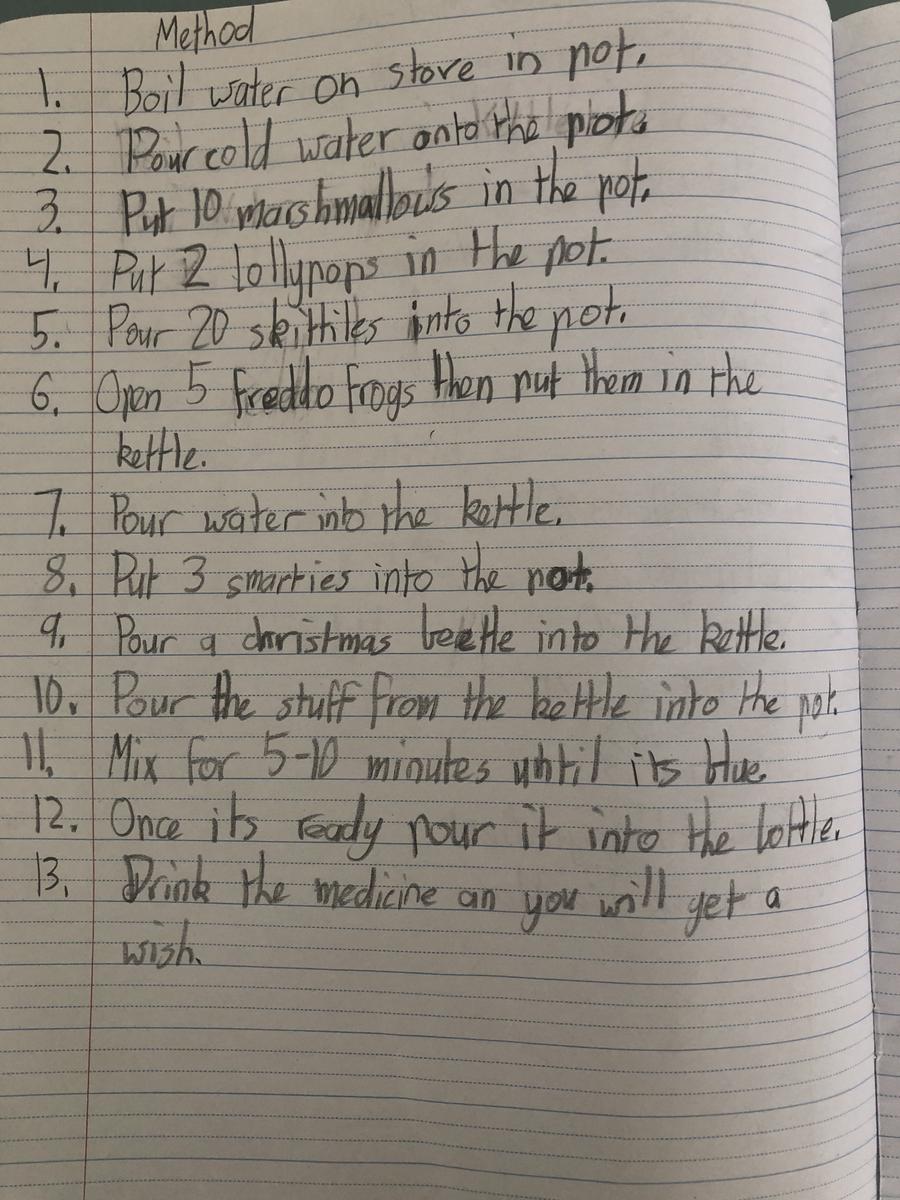 Method
1. Boil water on stove in pot.
2. Pour cold water onto the pot.
3. Put 10 marshmallows in the pot.
4. Put 2 lollypops in the pot.
5. Pour 20 skittiles into the pot.
6. Open 5 freddo frogs then put them in the
kettle.
7. Pour water into the kettle.
8. Put 3 smarties into the pot.
9. Pour a christmas beetle into the kettle.
10. Pour the stuff from the kettle into the pot.
11. Mix for 5-10 minutes until its blue.
12. Once its ready pour it into the bottle.
13. Drink the medicine an you will get a
wish.